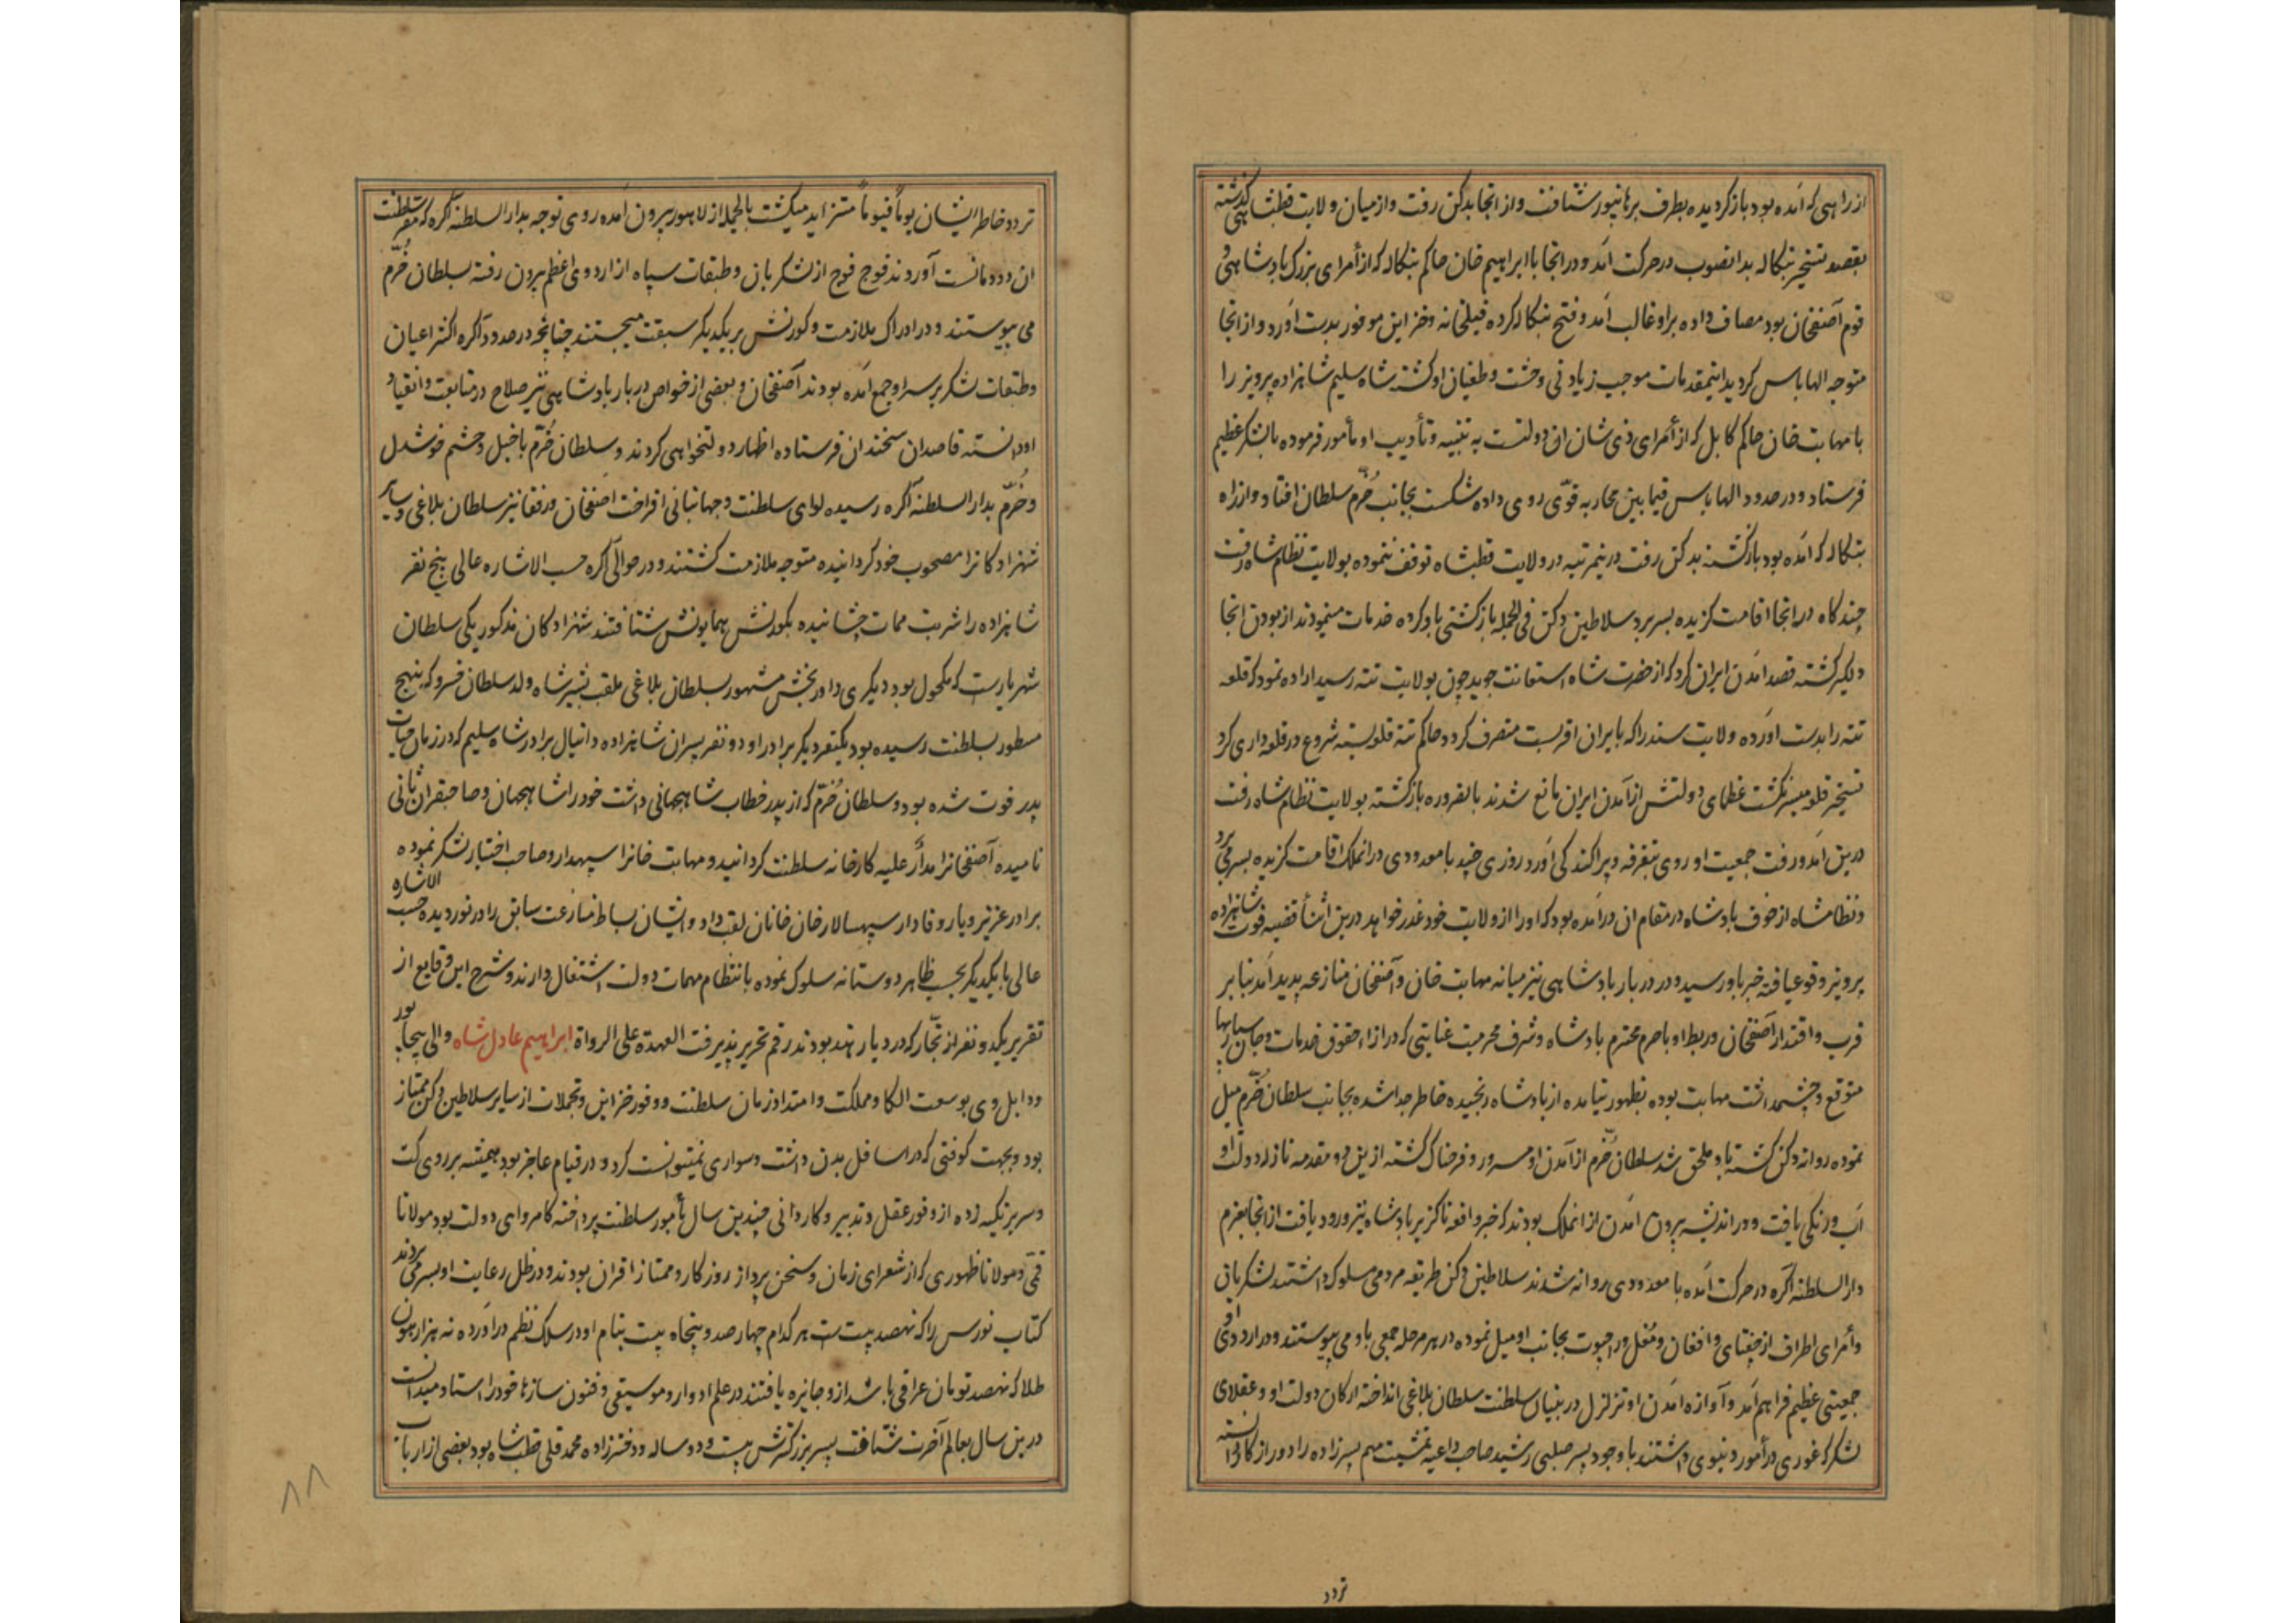 از راهی که آمده بود باز گردیده بطرف برهانپور شتافت و از انجا بدکن رفت و از میان ولایت قطبشاهی گذشته
بقصد تسخیر بنکاله بدانصوب در حرکت آمد و در انجا با ابراهیم خان حاکم بنکاله که از أمرای بزرک بادشاهی و
قوم آصفخان بود مصاف داده براو غالب آمد و فتح بنکاله کرده فیلخانه و خزاین موفور بدست آورد و از انجا
متوجه الهاباس کردید اینمقدمات موجب زیادتی وحشت و طغیان او کشته شاه سلیم شاهزاده پرویز را
با مهابت خان حاکم کابل که از أمرای ذی شان ان دولتست به تنبیه و تأدیب او مأمور فرموده با لشکر عظیم
فرستاد و در حدود الهاباس فیما بین محاربه قوی روی داده شکست بجانب خُرّم سلطان افتاد و از راه
بنکاله که آمده بود بازکشته بدکن رفت درینمرتبه در ولایت قطبشاه توقف ننموده بولایت نظام شاه رفت
چند کاه در انجا اقامت کزیده بسر برد سلاطین دکن فی الجمله بازکشتی باو کرده خدمات مینمودند از بودن انجا
دلکیر کشته قصد آمدن ایران کرد که از حضرت شاه استعانت جوید چون بولایت تته رسید اراده نمود که قلعه
تته را بدست آورده ولایت سند را که بایران اقربست متصرف کردد حاکم تته قلعه بسته شروع در قلعه داری کرد
تسخیر قلعه میسر نکشت عظمای دولتش از آمدن ایران مانع شدند بالضروره بازکشته بولایت نظام شاه رفت
درین آمد و رفت جمعیت او روی بتفرقه و پراکندکی آورد روزی چند با معدودی در انملک اقامت کزیده بسر می برد
و نظامشاه از خوف بادشاه در مقام ان درآمده بود که او را از ولایت خود عذر خواهد درین اثنا قضیه فوت شاهزاده
پرویز وقوع یافته خبر باو رسید و در دربار بادشاهی نیز میانه مهابت خان و آصفخان منازعه پدید آمد بنابر
قرب و اقتدار آصفخان و ربط او با حرم محترم بادشاه و شرف محرمیت عنایتی که در ازاء حقوق خدمات و جان سپاریها
متوقع و چشمداشت مهابت بوده بظهور نیامده از بادشاه رنجیده خاطر جدا شده بجانب سلطان خُرّم میل
نموده روانه دکن کشته باو ملحق شد سلطان خُرّم از آمدن او مسرور و فرحناک کشته ازین دو مقدمه تازه کار دولت او
آب و رنکی یافت و در اندیشه بیرون آمدن از انملک بودند که خبر واقعه ناکزیر بادشاه نیز ورود یافت از انجا بعزم
دار السلطنه آکره در حرکت آمده با معدودی روانه شدند سلاطین دکن طریقه مردمی مسلوک داشتند لشکریان
و أمرای اطراف از چغتای و افغان و مُغل و راجپوت بجانب او میل نموده در هر مرحله جمعی باو می پیوستند و در اردوی او
جمعیتی عظیم فراهم آمد و آوازه آمدن او تزلزل در بنیان سلطنت سلطان بلاغی انداخته ارکان دولت او و عقلای
لشکر که غوری در أمور دنیوی داشتند با وجود پسر صلبی رشید صاحب داعیه تمشیت مهم پسرزاده را دور از کار دانسته
تردد
تردد خاطر ایشان یوماً فیوماً متزاید میکشت بالجمله از لاهور بیرون آمده روی توجه بدار السلطنه آکره که مقر سلطنت
ان دودمانست آوردند فوج فوج از لشکریان و طبقات سپاه از اردوی اعظم بیرون رفته بسلطان خُرّم
می پیوستند و در ادراک ملازمت و کورنش بر یکدیکر سبقت میجستند چنانچه در حدود آکره اکثر اعیان
و طبقات لشکر بر سر او جمع آمده بودند آصفخان و بعضی از خواص دربار بادشاهی نیز صلاح در متابعت و انقیاد
او دانسته قاصدان سخندان فرستاده اظهار دولتخواهی کردند و سلطان خُرّم با خیل و حشم خوشدل
و خُرّم بدار السلطنه آکره رسیده لوای سلطنت و جهانبانی افراخت آصفخان و رفقا نیز سلطان بلاغی و سایر
شهزادکانرا مصحوب خود کردانیده متوجه ملازمت کشتند و در حوالی آکره حسب الاشاره عالی پنج نفر
شاهزاده را شربت ممات چشانیده بکورنش همایونش شتافتند شهزادکان مذکور یکی سلطان
شهریارست که مکحول بود دیکری داوربخش مشهور بسلطان بلاغی ملقب بشیر شاه ولد سلطان خسرو که بنهج
مسطور بسلطنت رسیده بود یکنفر دیکر برادر او دو نفر پسران شاهزاده دانیال برادر شاه سلیم که در زمان حیات
پدر فوت شده بود و سلطان خُرّم که از پدر خطاب شاهجهانی داشت خود را شاهجهان و صاحبقران ثانی
نامیده آصفخانرا مدار علیه کارخانه سلطنت کردانید و مهابت خانرا سپهدار و صاحب اختیار لشکر نموده
برادر عزیز و یار وفادار سپهسالار خان خانان لقب داد و ایشان بساط منازعت سابق را درنوردیده حسب الاشاره
عالی با یکدیکر بحسب ظاهر دوستانه سلوک نموده بانتظام مهمات دولت اشتغال دارند و شرح این وقایع از
تقریر یکدو نفر از تجّار که در دیار هند بودند رقم تحریر پذیرفت العهدة علی الرواة ابراهیم عادل شاه والی بیجاپور
بود و بجهت کوفتی که در اسافل بدن داشت و سواری نمیتوانست کرد و در قیام عاجز بود همیشه بر روی کت
و سریر تکیه زده از وفور عقل و تدبیر و کاردانی چندین سال بأمور سلطنت پرداخته کامروای دولت بود مولانا ملک
قمّی و مولانا ظهوری که از شعرای زمان و سخن پرداز روزکار و ممتاز اقران بودند و در ظل رعایت او بسر می بردند
کتاب نورس را که نهصد بیت است هر کدام چهارصد و پنجاه بیت بنام او در سلک نظم درآورده نه هزار هون
طلا که نهصد تومان عراقی باشد ازو جایزه یافتند در علم ادوار و موسیقی و فنون سازها خود را استاد میدانست
درین سال بعالم آخرت شتافت پسر بزرکترش بیست و دو ساله و دخترزاده محمد قلی قطبشاه بود بعضی از ارباب
۸۸